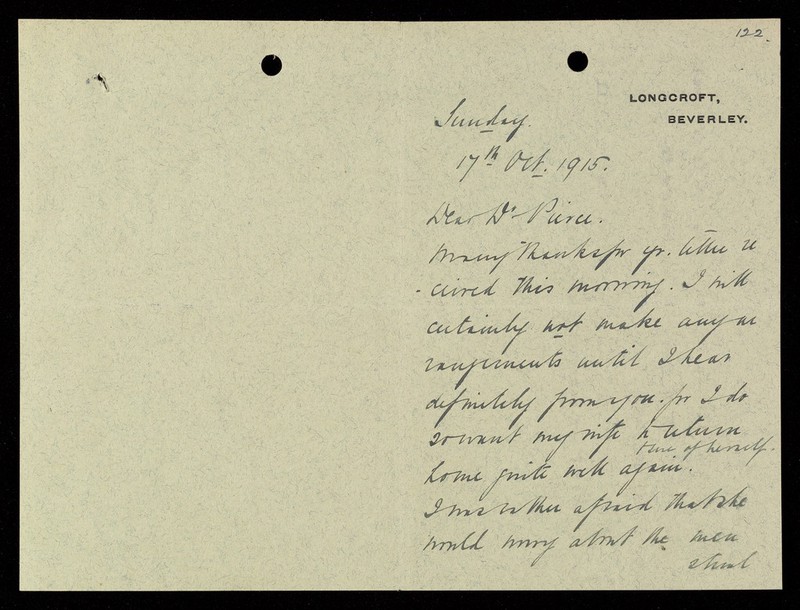 122.
LONGCROFT,
BEVERLEY.
Sunday.
17th Oct. 1915.
Dear Dr Pierce.
Many thanks for yr. letter re
-ceived this morning. I will
certainly not make any ar
rangements until I hear
definitely from you. for I do
so want my wife to return
home quite well again.
& sure of herself.
I was rather afraid that she
would worry about the men